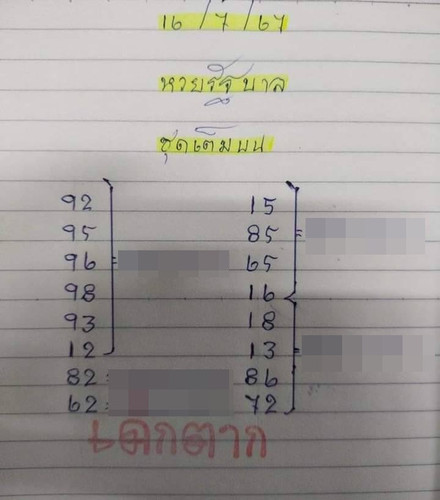 16/7/67
หวยรัฐบาล
ชุดเต็มบน
92 15
95 85 =
96 = 65
98 16
93 18
12 13 =
82 = 86
62 = 72
เดกตาก